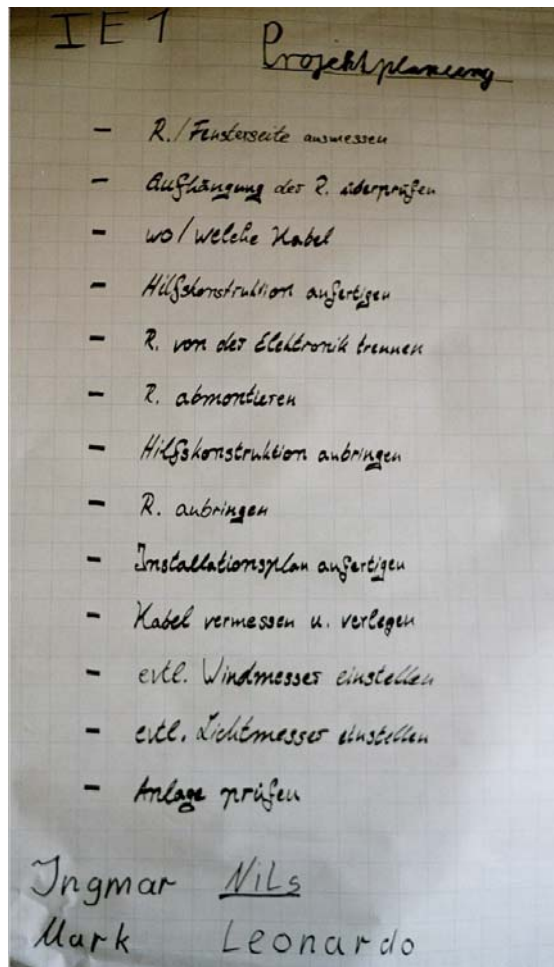 IE1 Projektplanung
- R./Fensterseite ausmessen
- Aufhängung der R. überprüfen
- wo/welche Kabel
- Hilfskonstruktion anfertigen
- R. von der Elektronik trennen
- R. abmontieren
- Hilfskonstruktion anbringen
- R. anbringen
- Installationsplan anfertigen
- Kabel vermessen u. verlegen
- evtl. Windmesser einstellen
- evtl. Lichtmesser einstellen
- Anlage prüfen
Ingmar Nils
Mark Leonardo